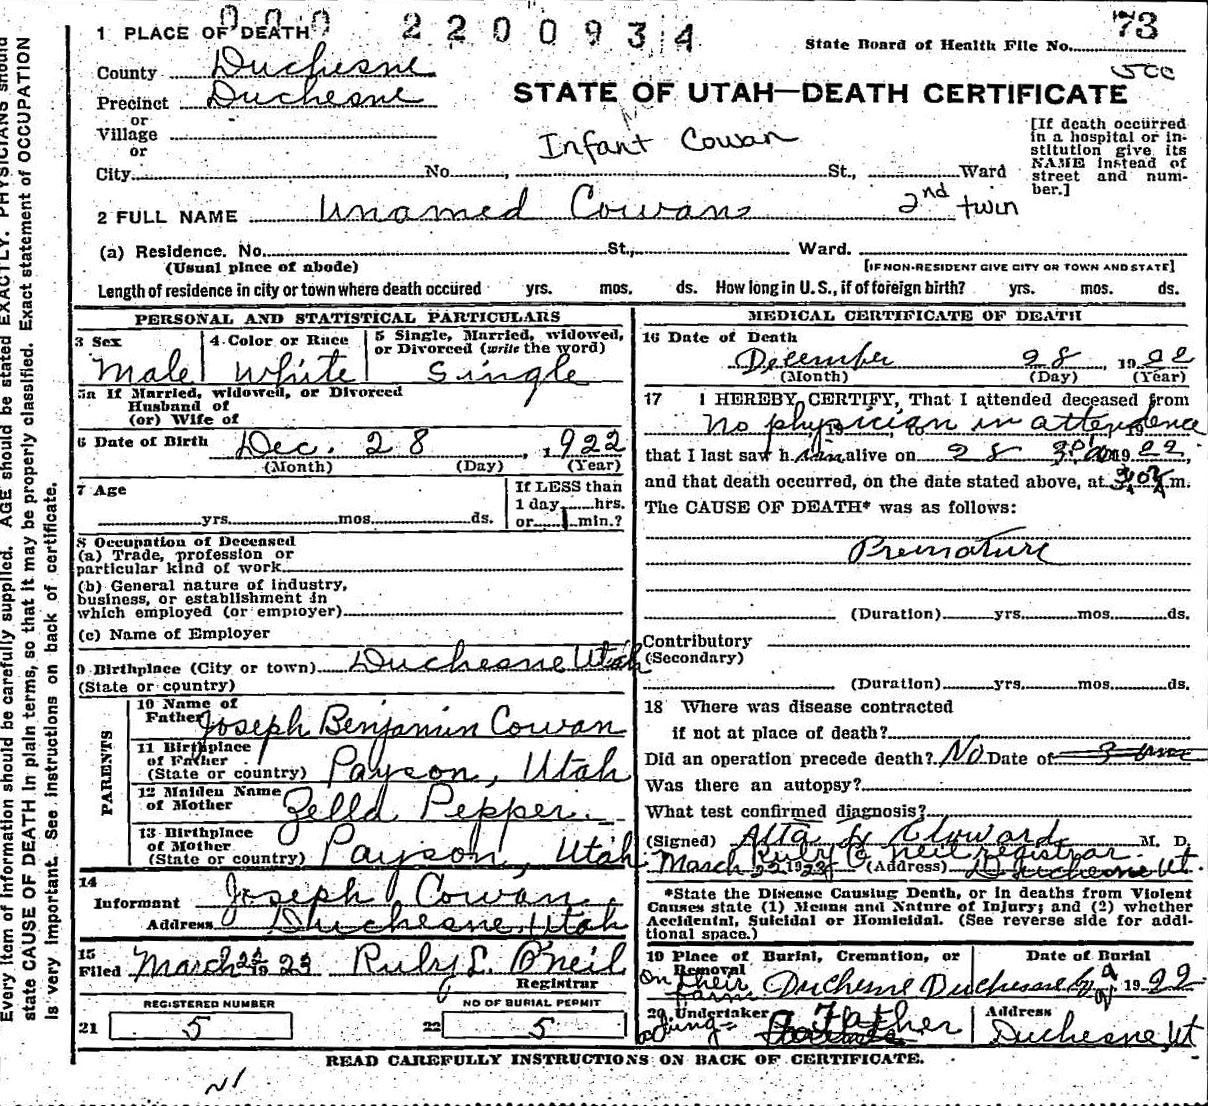 000 2200934
73
1 PLACE OF DEATH
State Board of Health File No.
County Duchesne
500
Precinct Duchesne
STATE OF UTAH—DEATH CERTIFICATE
or
Village
or
Infant Cowan
[If death occurred in a hospital or institution give its NAME instead of street and number.]
City No. , St., Ward
2 FULL NAME Unamed Cowans 2nd twin
(a) Residence. No. St., Ward.
(Usual place of abode) [IF NON-RESIDENT GIVE CITY OR TOWN AND STATE]
Length of residence in city or town where death occured yrs. mos. ds. How long in U. S., if of foreign birth? yrs. mos. ds.
PERSONAL AND STATISTICAL PARTICULARS
3 Sex
Male
4 Color or Race
White
5 Single, Married, widowed,
or Divorced (write the word)
Single
5a If Married, widowed, or Divorced
Husband of
(or) Wife of
6 Date of Birth Dec. 28, 1922
(Month) (Day) (Year)
7 Age
yrs. mos. ds.
If LESS than
1 day hrs.
or 1 min.?
8 Occupation of Deceased
(a) Trade, profession or
particular kind of work
(b) General nature of industry,
business, or establishment in
which employed (or employer)
(c) Name of Employer
9 Birthplace (City or town) Duchesne Utah
(State or country)
PARENTS
10 Name of
Father Joseph Benjamin Cowan
11 Birthplace
of Father
(State or country) Payson, Utah
12 Maiden Name
of Mother Zella Pepper
13 Birthplace
of Mother
(State or country) Payson, Utah
14
Informant Joseph Cowan
Address Duchesne, Utah
15
Filed March 1923 Ruby L. O'neil
Registrar
REGISTERED NUMBER
21 5
NO OF BURIAL PERMIT
22 5
MEDICAL CERTIFICATE OF DEATH
16 Date of Death
December 28, 1922
(Month) (Day) (Year)
17 I HEREBY CERTIFY, That I attended deceased from
No physician in attendence
that I last saw him alive on 28 1922,
and that death occurred, on the date stated above, at m.
The CAUSE OF DEATH* was as follows:
Premature
(Duration) yrs. mos. ds.
Contributory
(Secondary)
(Duration) yrs. mos. ds.
18 Where was disease contracted
if not at place of death?
Did an operation precede death? No Date of
Was there an autopsy?
What test confirmed diagnosis?
(Signed) M. D.
Ruby O'neil registrar
March 22 1923 (Address) Duchesne Ut
*State the Disease Causing Death, or in deaths from Violent
Causes state (1) Means and Nature of Injury; and (2) whether
Accidental, Suicidal or Homicidal. (See reverse side for additional space.)
19 Place of Burial, Cremation, or
Removal
Date of Burial
on their farm Duchesne Duchesne 1922
20 Undertaker
Father
Address
Duchesne, Ut
READ CAREFULLY INSTRUCTIONS ON BACK OF CERTIFICATE.
N1
Every item of information should be carefully supplied. AGE should be stated EXACTLY. PHYSICIANS should
state CAUSE OF DEATH in plain terms, so that it may be properly classified. Exact statement of OCCUPATION
is very important. See instructions on back of certificate.